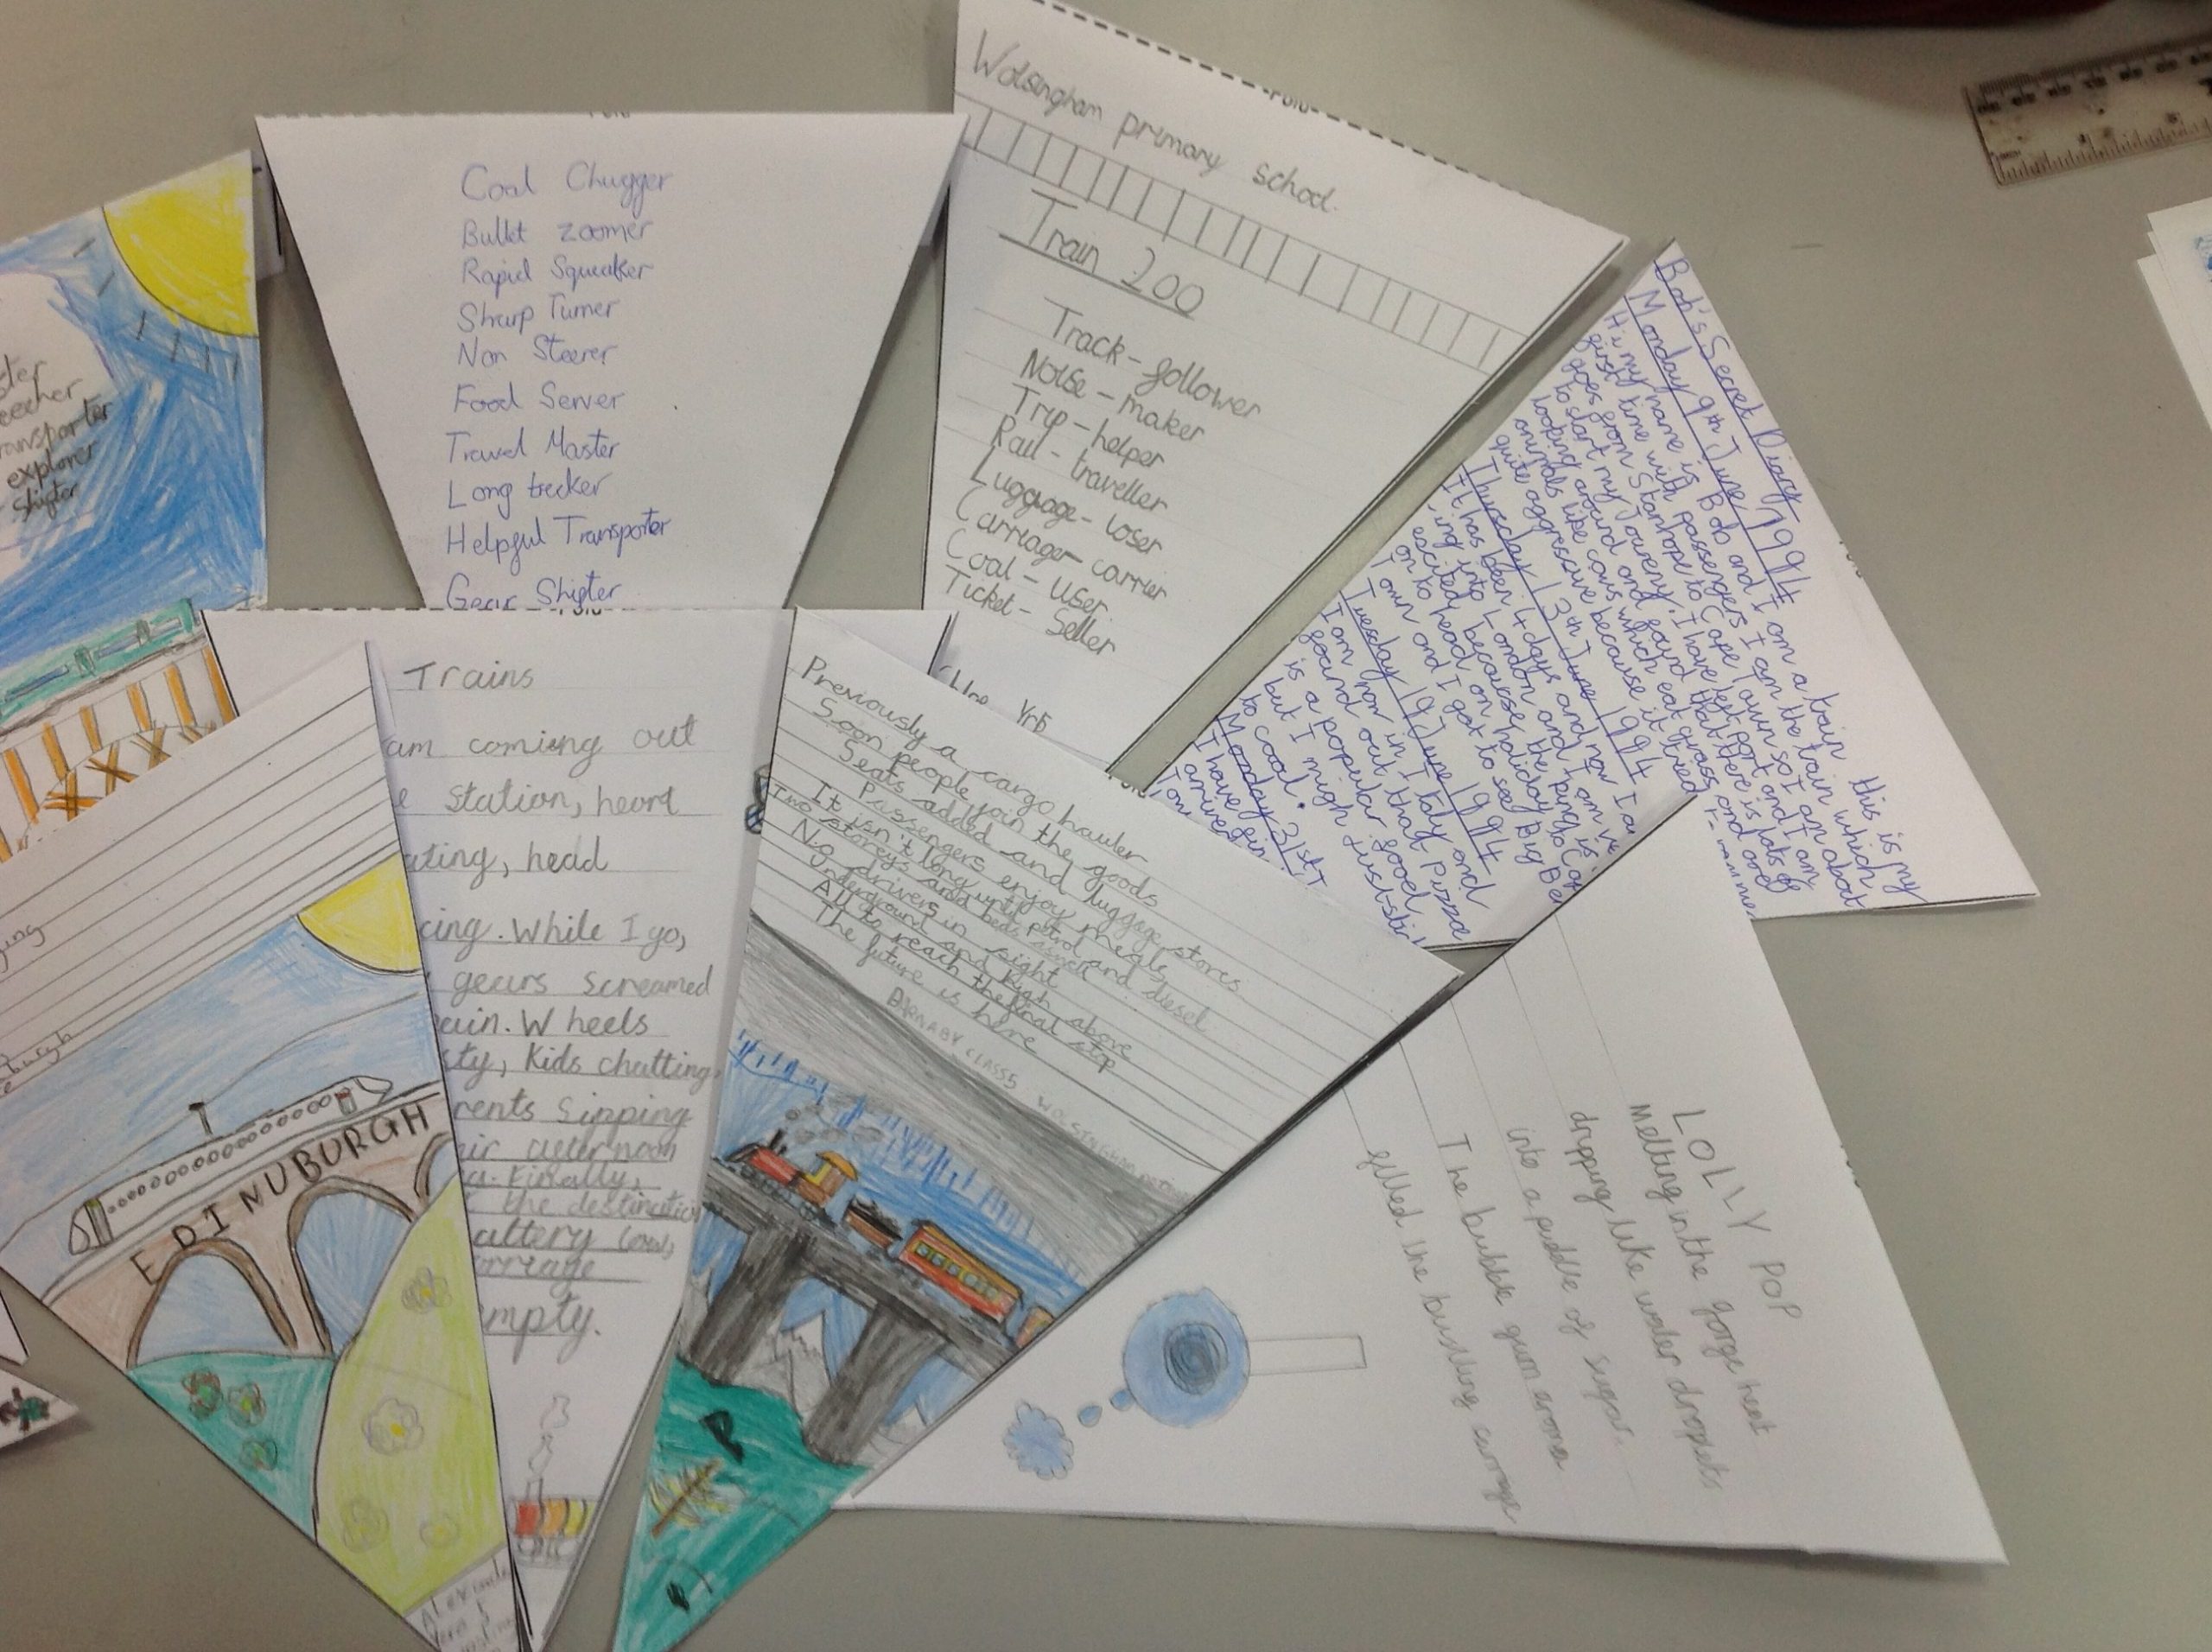 Coal Chugger
Bullet zoomer
Rapid Squeaker
Sharp Turner
Non Steerer
Food Server
Travel Master
Long trecker
Helpful Transporter
Gear Shifter
Wolsingham primary school.
Train 200
Track - follower
Noise - maker
Trip - helper
Rail - traveller
Luggage - loser
Carriage - carrier
Coal - user
Ticket - Seller
Yr5
Bob's Secret Diary
Monday 9th June 1994
Hi my name is Bob and I am a train this is my
first time with passengers I am the train which
goes from Stanhope to Cape Town so I am about
to start my Journery. I have left port and I am
looking around and found that there is lots of
animals like cows which eat grass and are
quite aggressive because it tried
Thursday 13th June 1994
It has been 4 days and now I a
ing into London and I am ve
excited because the king is
on to head on holiday to Cap
Town and I got to see Big Be
Tuesday 19 June 1994
I am now in Italy and
found out that Pizza
is a popular food
but I migh
to cool.
Monday 21st
I have
arrive
Tow
transporter
explorer
shifter
Trains
am coming out
station, heart
ating, head
cing. While I go,
gears screamed
ain. Wheels
sty, Kids chatting,
rents Sipping
eir afternoon
a. Finally,
the destination
attery low,
arriage
mpty.
Previously a cargo hauler
Soon people join the goods
Seats added and luggage stores
Passengers enjoy meals
It isn't long until petrol and diesel
Two storey's and beds
No drivers in sight
Underground and high above
All to reach the final stop
The future is here
BARNABY CLASS 5 WOLSINGHAM
EDINUBURGH
LOLLY POP
Melting in the forge heat
dripping like water droplets
into a puddle of sugar.
The bubble gum aroma
filled the bustling carrage